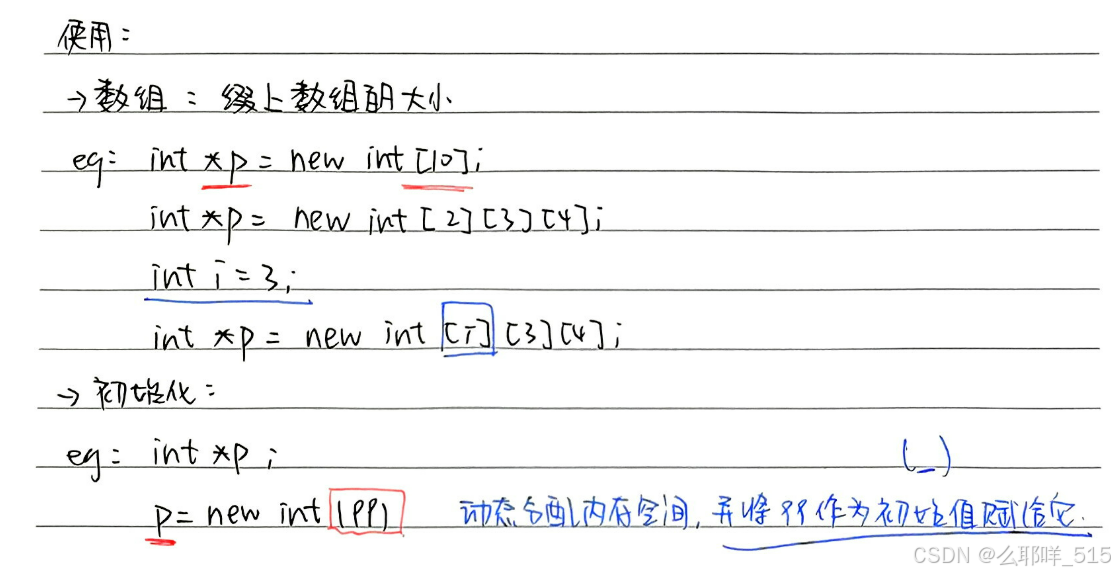 使用：
→数组：缀上数组的大小
eg：int *p = new int [10];
int *p = new int [2][3][4];
int i = 3;
int *p = new int [i] [3][4];
→初始化：
eg：int *p ;
(_)
p = new int (99) 动态分配内存空间，并将99作为初始值赋给它.
CSDN @么耶咩_515